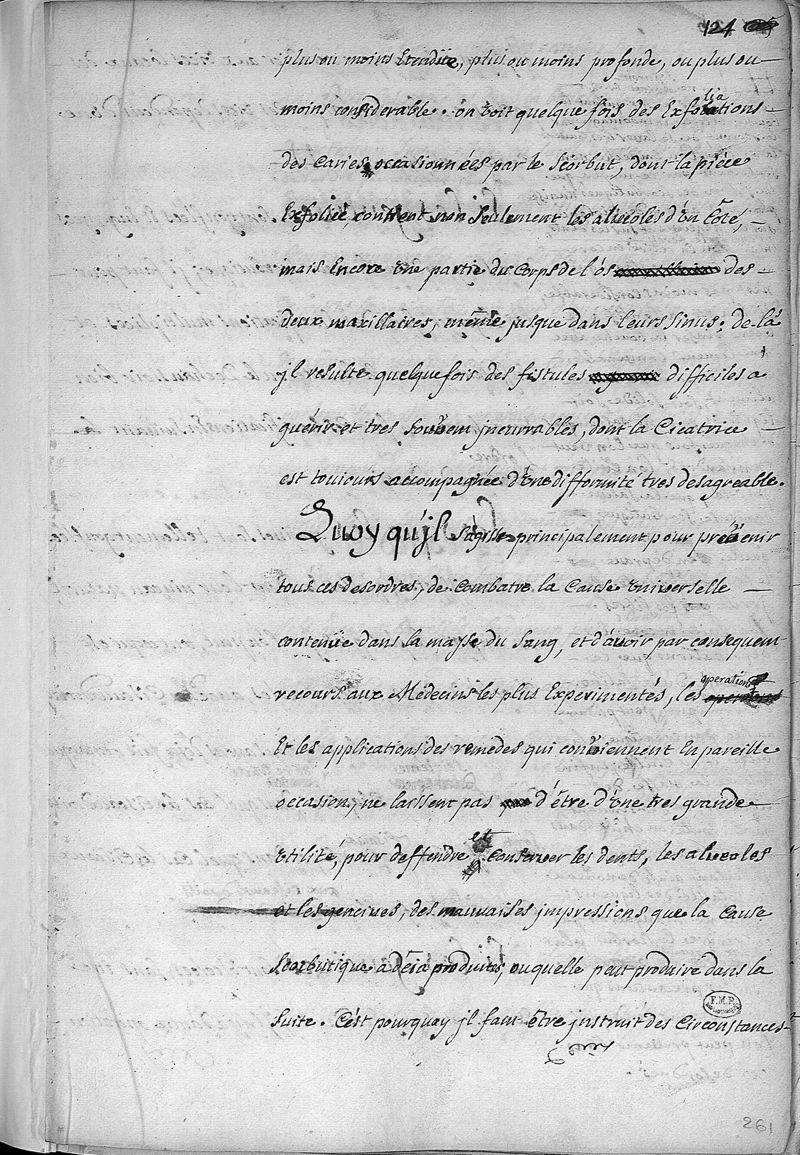 124
plus ou moins Etenduë, plus ou moins profonde, ou plus ou
moins considerable. on voit quelque fois des Exfoliations
des Caries occasionnées par le Scorbut, dont la piéce
Exfoliée, contient non seulement les alveoles d'un Côté,
mais Encore une partie du Corps de l'os des
deux maxillaires, même jusque dans leurs sinus; de là
jl resulte quelque fois des fistules difficiles a
guérir et tres souvent jncurrables, dont la Cicatrice
est toujours accompagnée d'une difformité tres desagreable.
Quoy qu'jl s'agisse principalement pour prévenir
tous ces desordres, de Combatre la Cause universelle
contenüe dans la masse du Sang, et d'avoir par consequent
recours aux Médecins les plus Experimentés, les operations
Et les applications des remedes qui conviennent En pareille
occasion, ne laissent pas d'être d'une tres grande
utilité, pour deffendre et Conserver les dents, les alveoles
et les gencives, des mauvaises jmpressions que la Cause
Scorbutique a déja produites, ou quelle peut produire dans la
suite. C'est pourquoy jl faut être jnstruit des Circonstances
F.M.P.
261